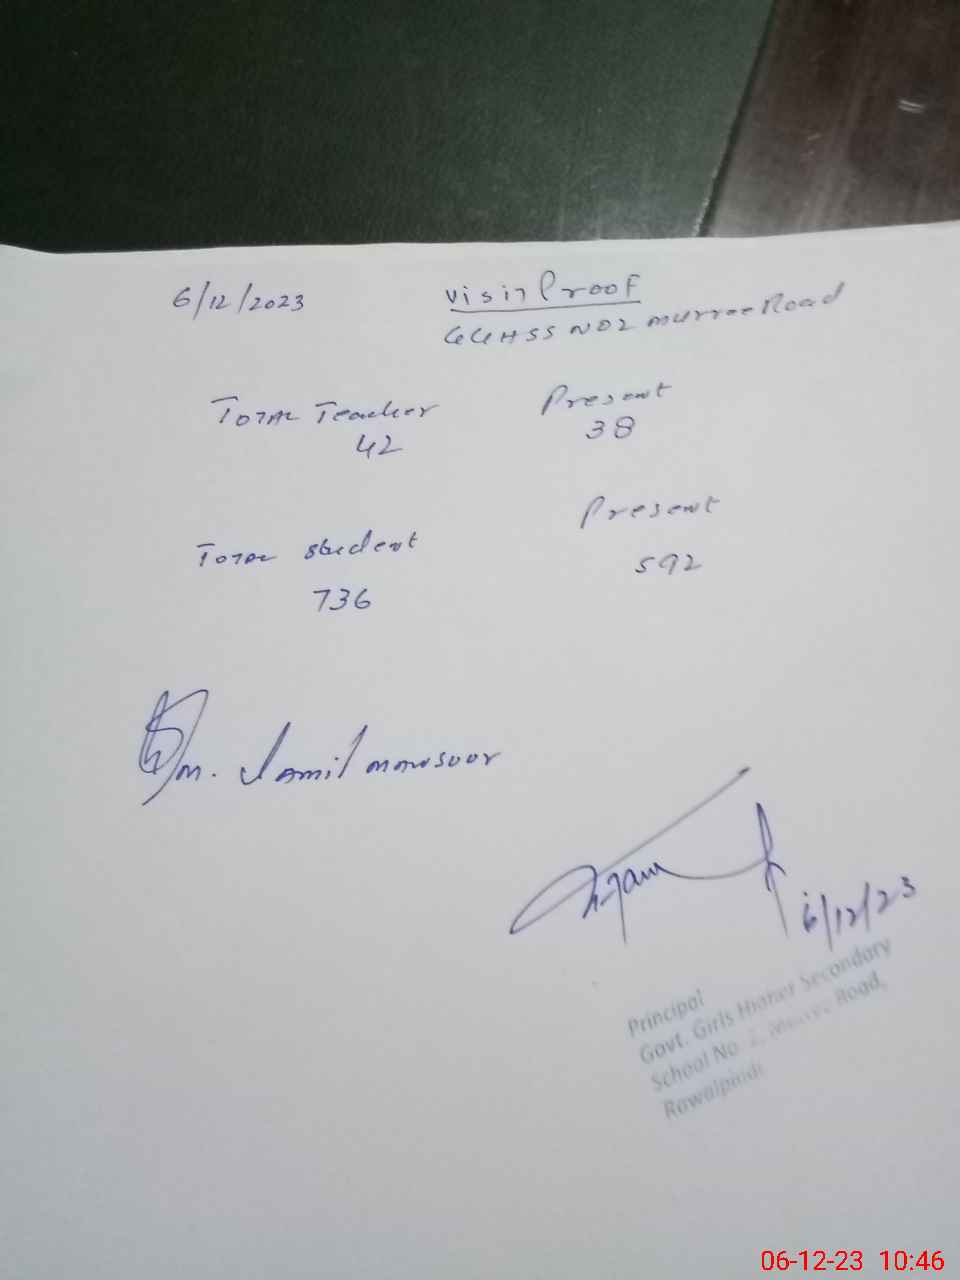 6/12/2023
Visit Proof
GGHSS NO2 Murree Road
Total Teacher
42
Present
38
Total Student
736
Present
592
M. Jamil Mansoor
6/12/23
Principal
Govt. Girls Higher Secondary
School No. 2, Murree Road,
Rawalpindi
06-12-23 10:46